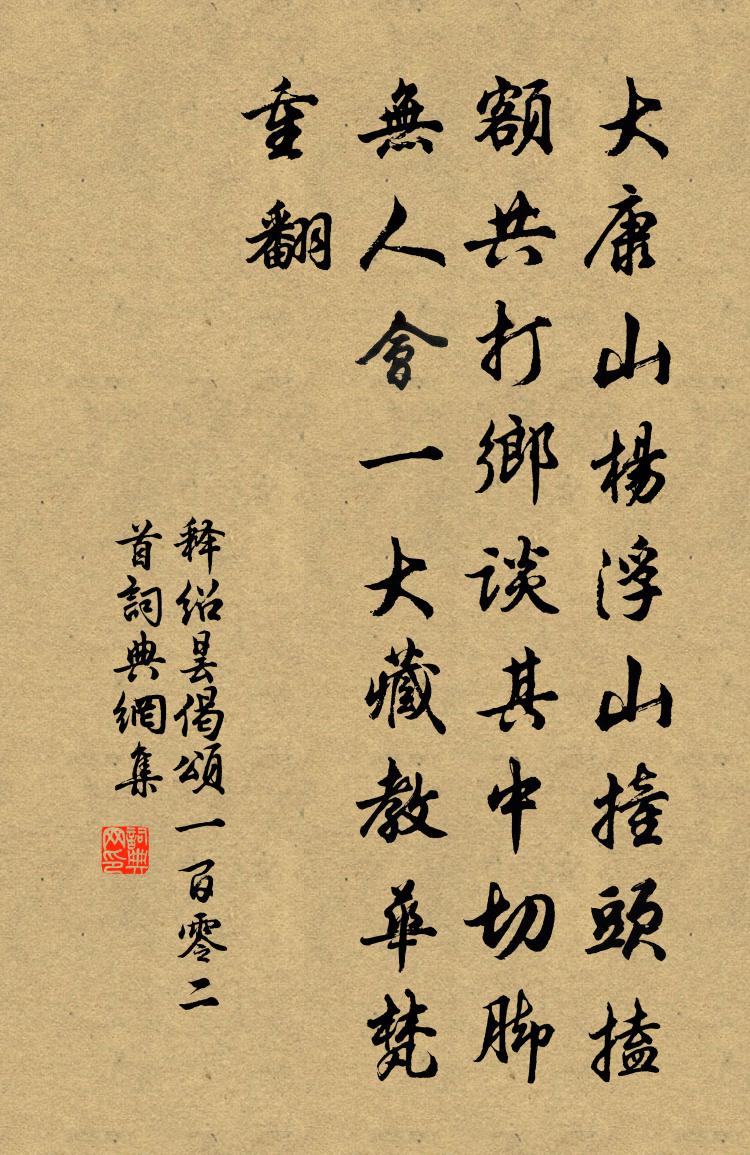 大康山楊浮山撞頭搕
額共打鄉談其中切脚
無人會一大藏教華梵
重翻
释绍昙偈頌一百零二
首詞典網集
詞典网印